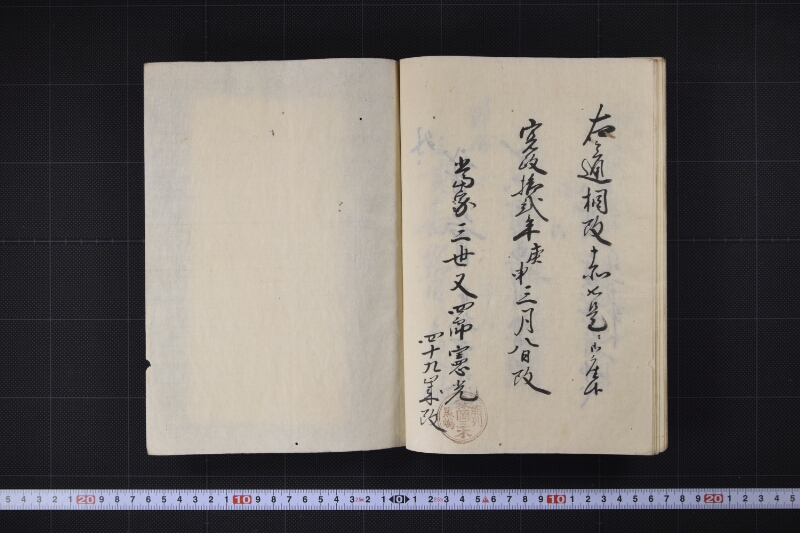 右之通相改
寛政拾弐年庚申三月八日改
当家三世又四郎憲光
四十九歳改
5 4 3 2 1 20 9 8 7 6 5 4 3 2 1 10 9 8 7 6 5 4 3 2 1 0 1 2 3 4 5 6 7 8 9 10 1 2 3 4 5 6 7 8 9 20 1 2 3 4 5